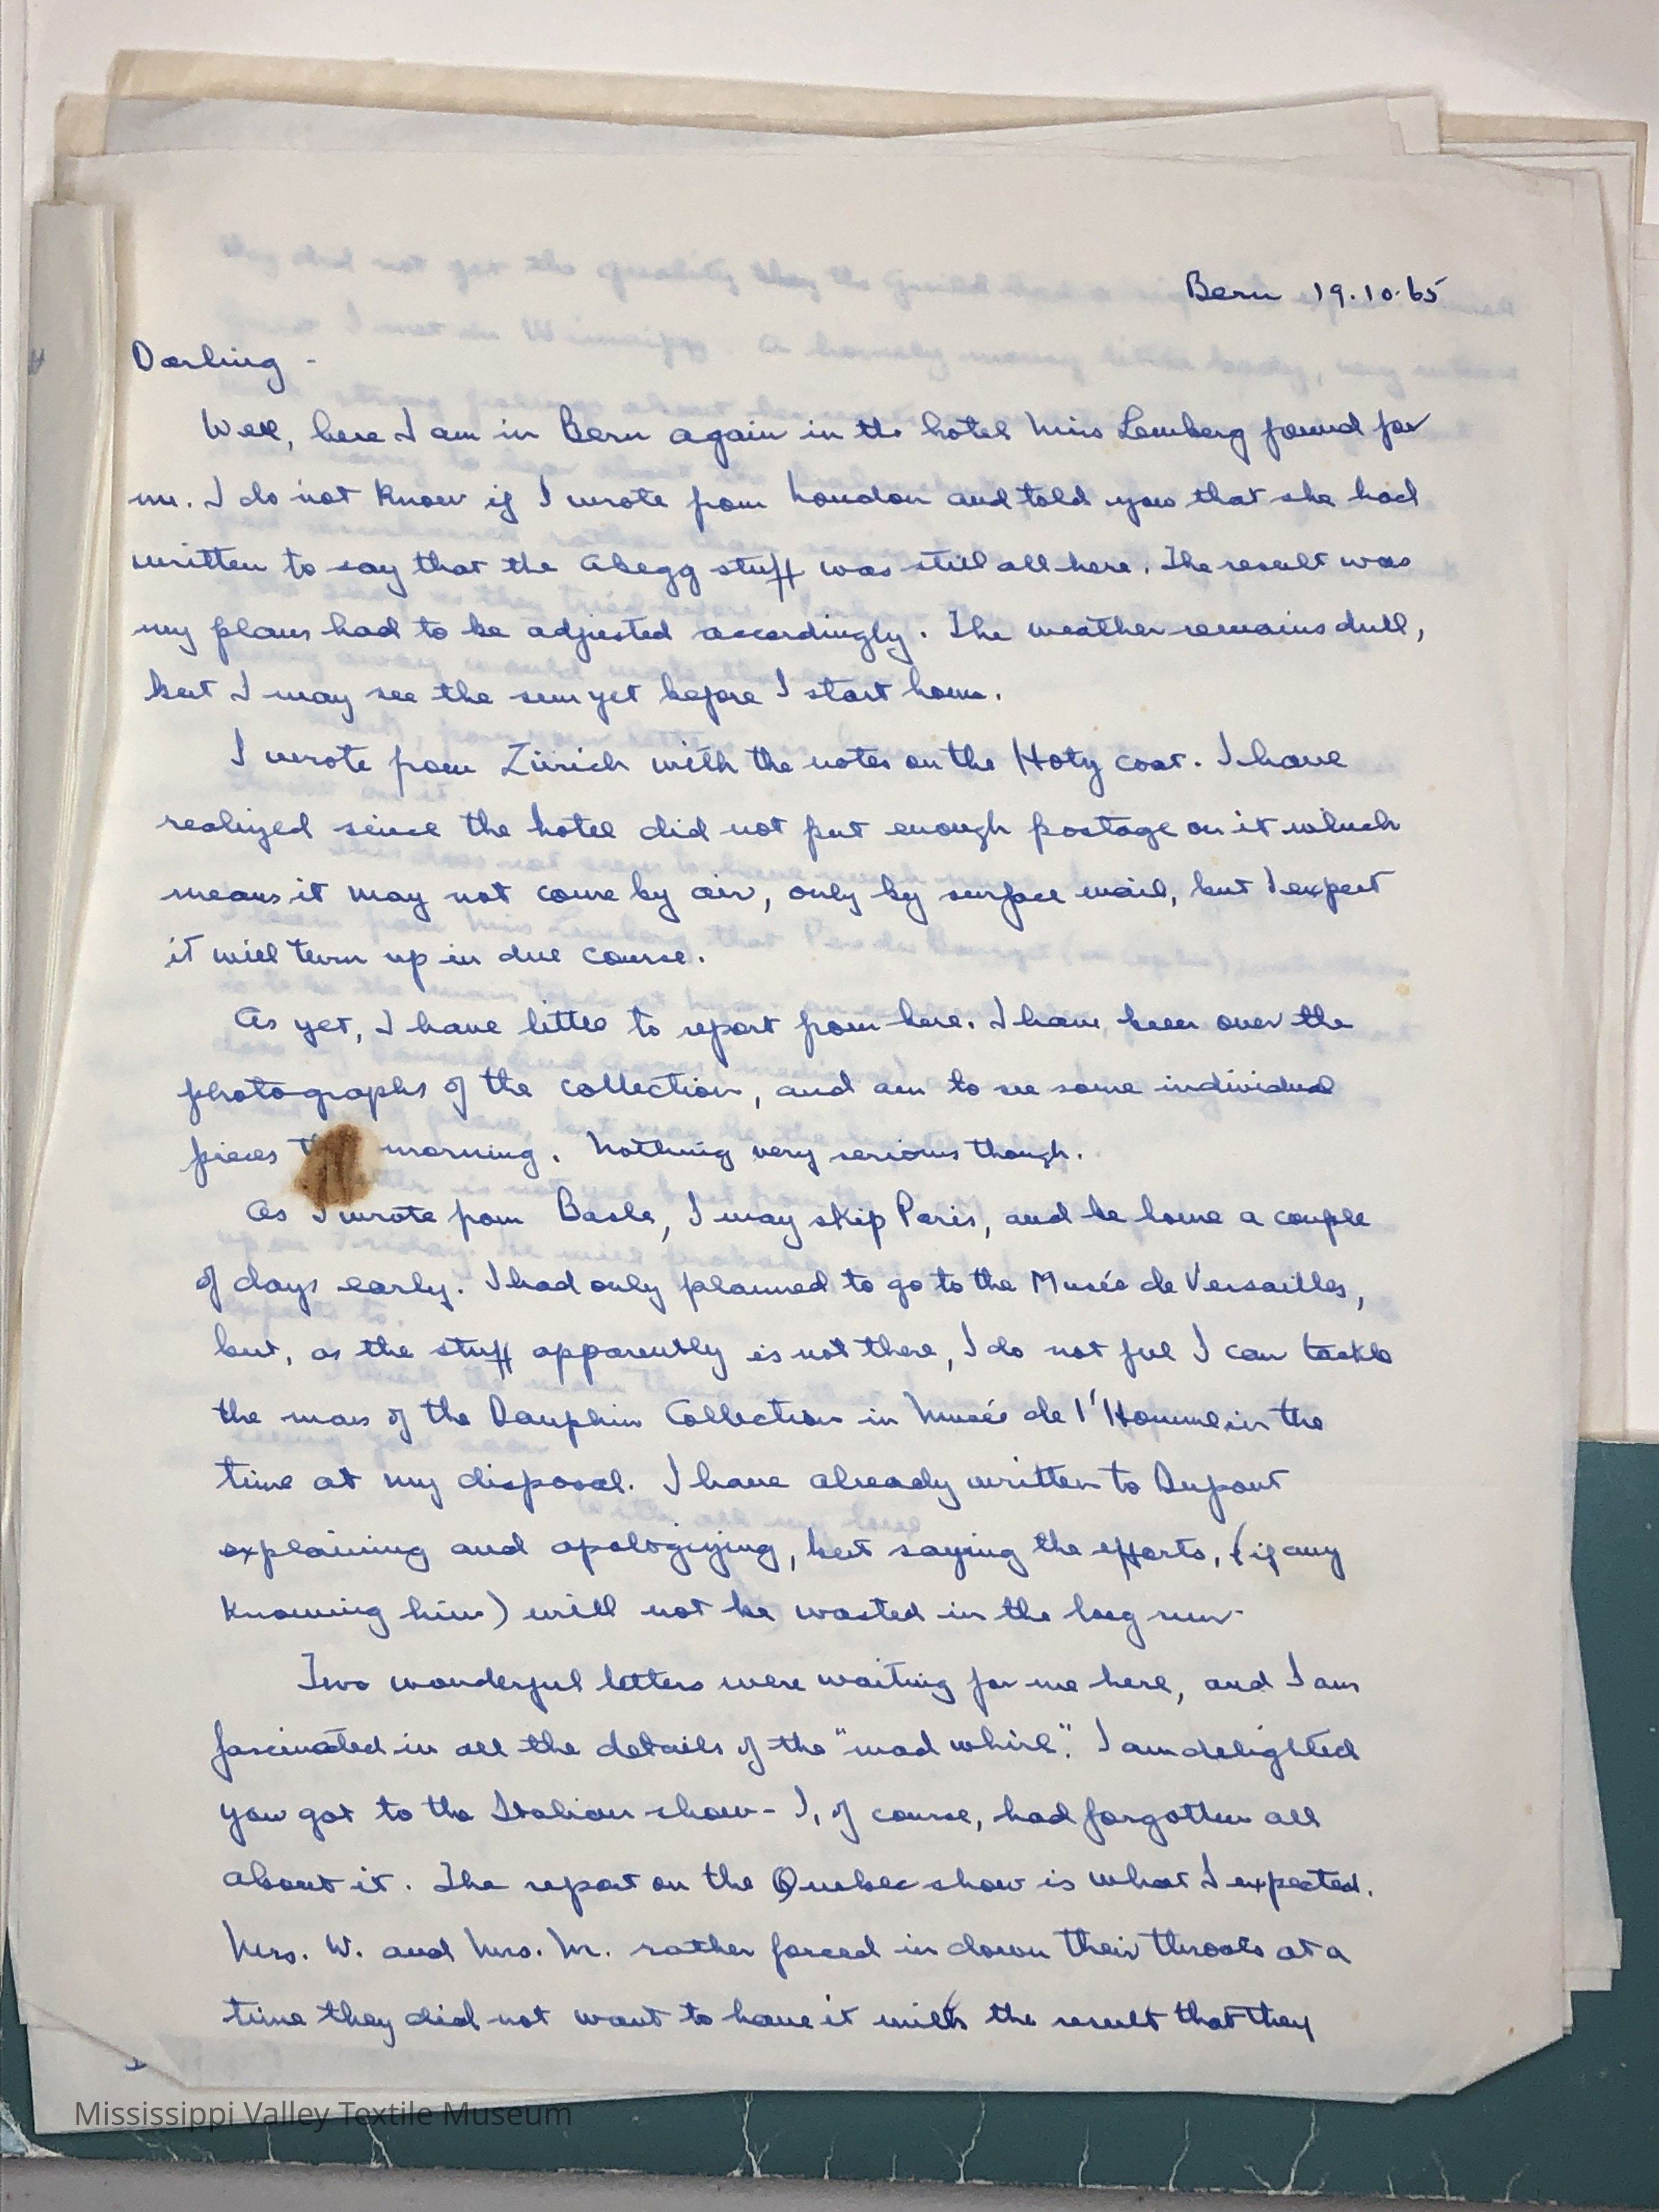 Bern 19.10.65
Darling -
Well, here I am in Bern again in the hotel Miss Lemberg found for
me. I do not know if I wrote from London and told you that she had
written to say that the Abegg stuff was still all here. The result was
my plans had to be adjusted accordingly. The weather remains dull,
but I may see the sun yet before I start home.
I wrote from Zürich with the notes on the Hoty coat. I have
realized since the hotel did not put enough postage on it which
means it may not come by air, only by surface mail, but I expect
it will turn up in due course.
As yet, I have little to report from here. I have been over the
photographs of the collection, and am to see some individual
pieces morning. Nothing very serious though.
As I wrote from Basle, I may skip Paris, and be home a couple
of days early. I had only planned to go to the Musée de Versailles,
but, as the stuff apparently is not there, I do not feel I can tackle
the mass of the Dauphin Collection in Musée de l'Homme in the
time at my disposal. I have already written to Dupont
explaining and apologizing, but saying the efforts, (if any
knowing him) will not be wasted in the long run.
Two wonderful letters were waiting for me here, and I am
fascinated in all the details of the "mad whirl". I am delighted
you got to the Italian show - I, of course, had forgotten all
about it. The report on the Quebec show is what I expected.
Mrs. W. and Mrs. M. rather forced in down their throats at a
time they did not want to have it with the result that they
Mississippi Valley Textile Museum